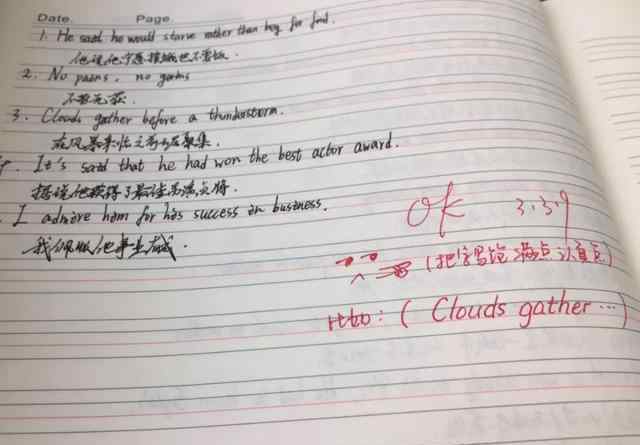 Date. Page
1. He said he would starve rather than beg for food.
他说他宁愿挨饿也不要饭.
2. No pains, no gains
不劳无获.
3. Clouds gather before a thunderstorm.
在风暴来临之前云层聚集.
. It's said that he had won the best actor award.
据说他获得了最佳男演员奖.
. I admire him for his success in business.
我佩服他事业有成.
OK 3.3.9
(把字写饱满点 认真点)
: ( Clouds gather ...)